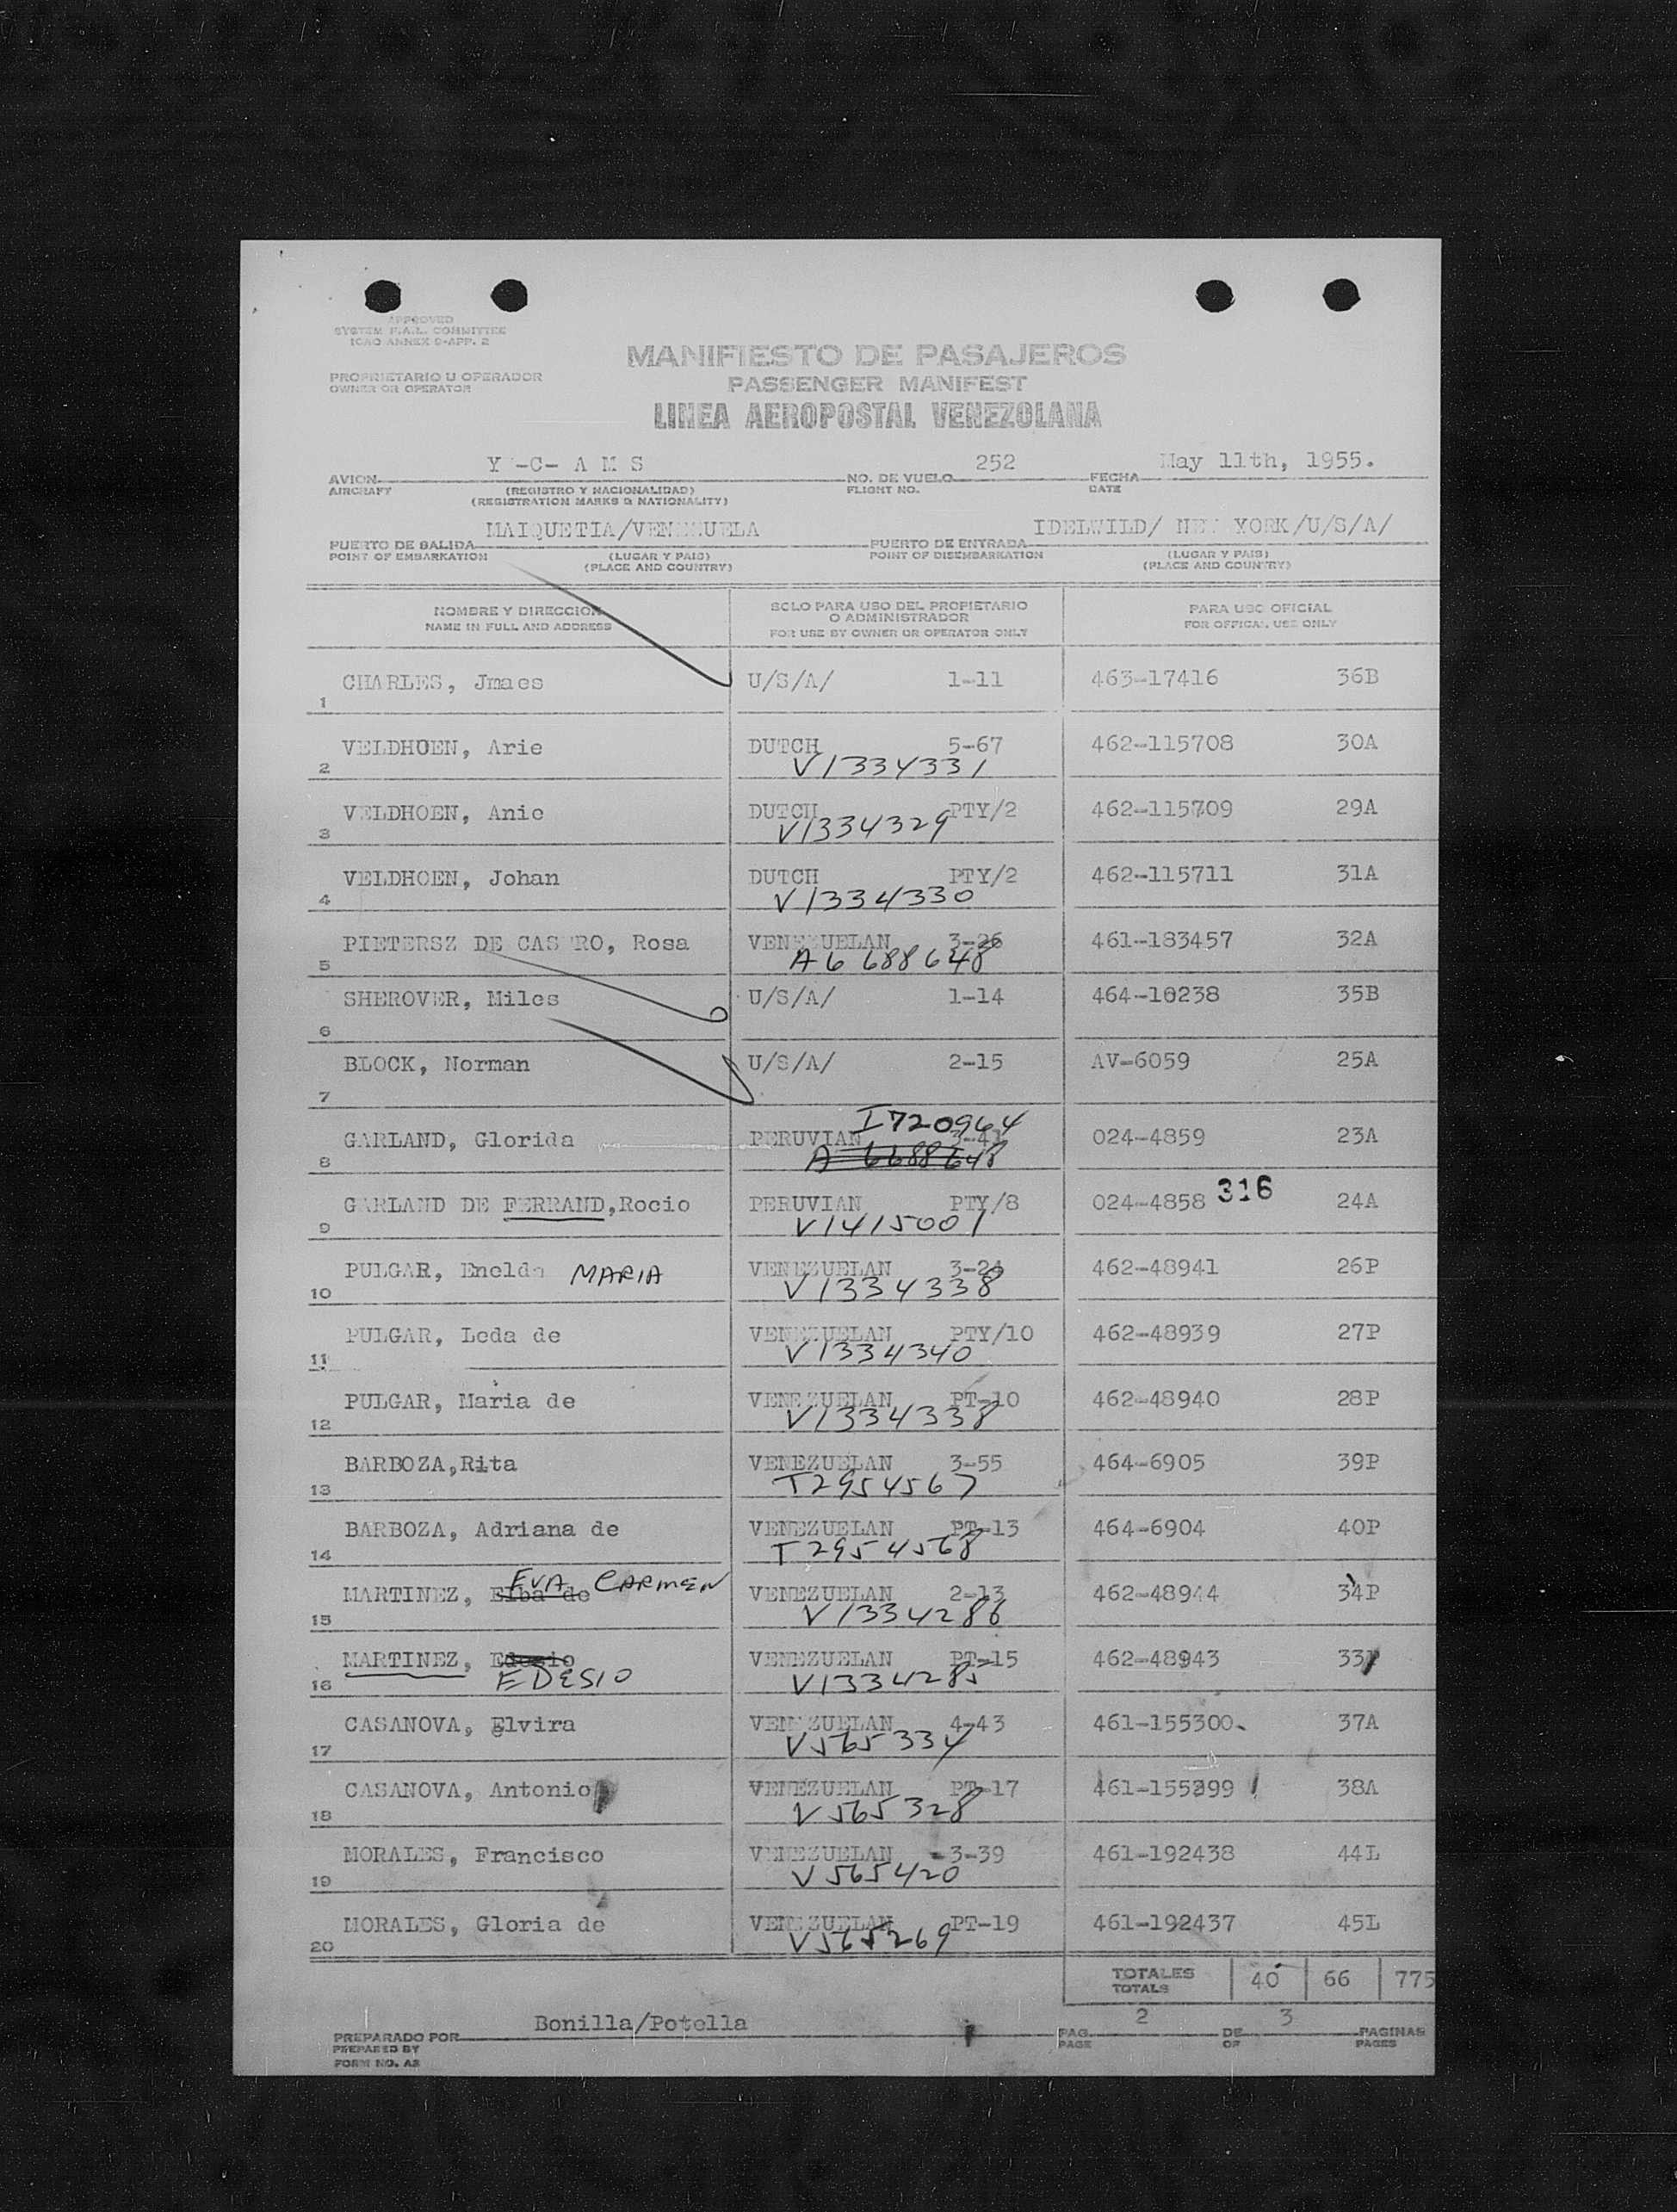 APPROVED
SYSTEM F.A.L. COMMITTEE
ICAO ANNEX 9-APP. 2
MANIFIESTO DE PASAJEROS
PROPRIETARIO U OPERADOR
OWNER OR OPERATOR
PASSENGER MANIFEST
LINEA AEROPOSTAL VENEZOLANA
AVION Y -C- A M S NO. DE VUELO 252 FECHA May 11th, 1955.
AIRCRAFT (REGISTRO Y NACIONALIDAD) FLIGHT NO. DATE
(REGISTRATION MARKS & NATIONALITY)
PUERTO DE SALIDA MAIQUETIA/VENEZUELA PUERTO DE ENTRADA IDELWILD/ NEW YORK/U/S/A/
POINT OF EMBARKATION (LUGAR Y PAIS) POINT OF DISEMBARKATION (LUGAR Y PAIS)
(PLACE AND COUNTRY) (PLACE AND COUNTRY)
NOMBRE Y DIRECCION SOLO PARA USO DEL PROPIETARIO PARA USO OFICIAL
NAME IN FULL AND ADDRESS O ADMINISTRADOR FOR OFFICAL USE ONLY
FOR USE BY OWNER OR OPERATOR ONLY
CHARLES, Jmaes U/S/A/ 1-11 463-17416 36B
1
VELDHOEN, Arie DUTCH 5-67 462-115708 30A
2 V1334331
VELDHOEN, Anie DUTCH PTY/2 462-115709 29A
3 V1334329
VELDHOEN, Johan DUTCH PTY/2 462-115711 31A
4 V1334330
PIETERSZ DE CASTRO, Rosa VENEZUELAN 3-26 461-183457 32A
5 A6 688648
SHEROVER, Miles U/S/A/ 1-14 464-10238 35B
6
BLOCK, Norman U/S/A/ 2-15 AV-6059 25A
7
I720964
GARLAND, Glorida PERUVIAN 3-41 024-4859 23A
8 A 6688648
GARLAND DE FERRAND,Rocio PERUVIAN PTY/8 024-4858 316 24A
9 V1415001
PULGAR, Enelda MARIA VENEZUELAN 3-24 462-48941 26P
10 V1334338
PULGAR, Leda de VENEZUELAN PTY/10 462-48939 27P
11 V1334340
PULGAR, Maria de VENEZUELAN PT-10 462-48940 28P
12 V1334338
BARBOZA,Rita VENEZUELAN 3-55 464-6905 39P
13 T2954567
BARBOZA, Adriana de VENEZUELAN PT-13 464-6904 40P
14 T2954568
EVA CARMEN
MARTINEZ, Elba de VENEZUELAN 2-13 462-48944 34P
15 V1334286
MARTINEZ, Edesio VENEZUELAN PT-15 462-48943 33P
16 EDESIO V1334285
CASANOVA, Elvira VENEZUELAN 4-43 461-155300 37A
17 V565334
CASANOVA, Antonio VENEZUELAN PT-17 461-155299 38A
18 V565328
MORALES, Francisco VENEZUELAN 3-39 461-192438 44L
19 V565420
MORALES, Gloria de VENEZUELAN PT-19 461-192437 45L
20 V565269
TOTALES 40 66 775
TOTALS
PREPARADO POR Bonilla/Potella PAG. 2 DE 3 PAGINAS
PREPARED BY PAGE OF PAGES
FORM NO. A2